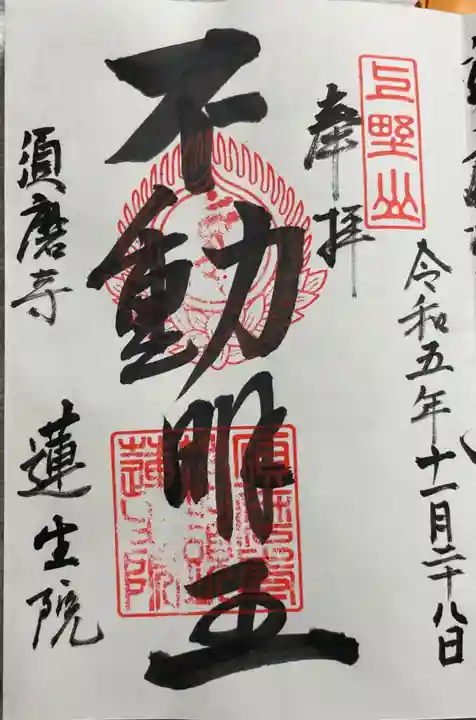 上野山
奉拝
令和五年十一月二十八日
不動明王
須磨寺
蓮生院